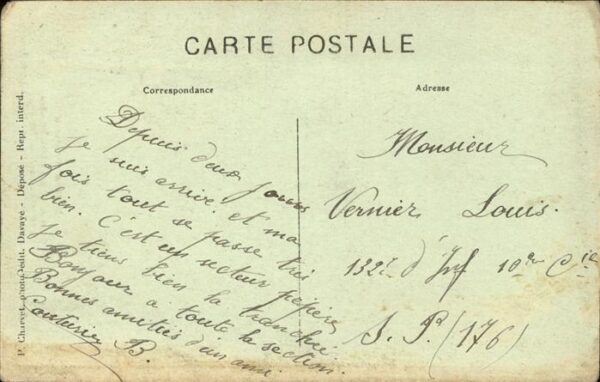 CARTE POSTALE
Correspondance
Adresse
P. Charvet photo-édit. Davayé - Déposé - Repr. interd.
Depuis deux jours
je suis arrivé et ma
fois tout se passe très
bien. C'est un secteur pépère
je tiens bien la tranchée.
Bonjour à toute la section.
Bonnes amitiés d'un ami.
Couturier B.
Monsieur
Vernier Louis.
132e d'Inf 10e Cie
S. P. (176)